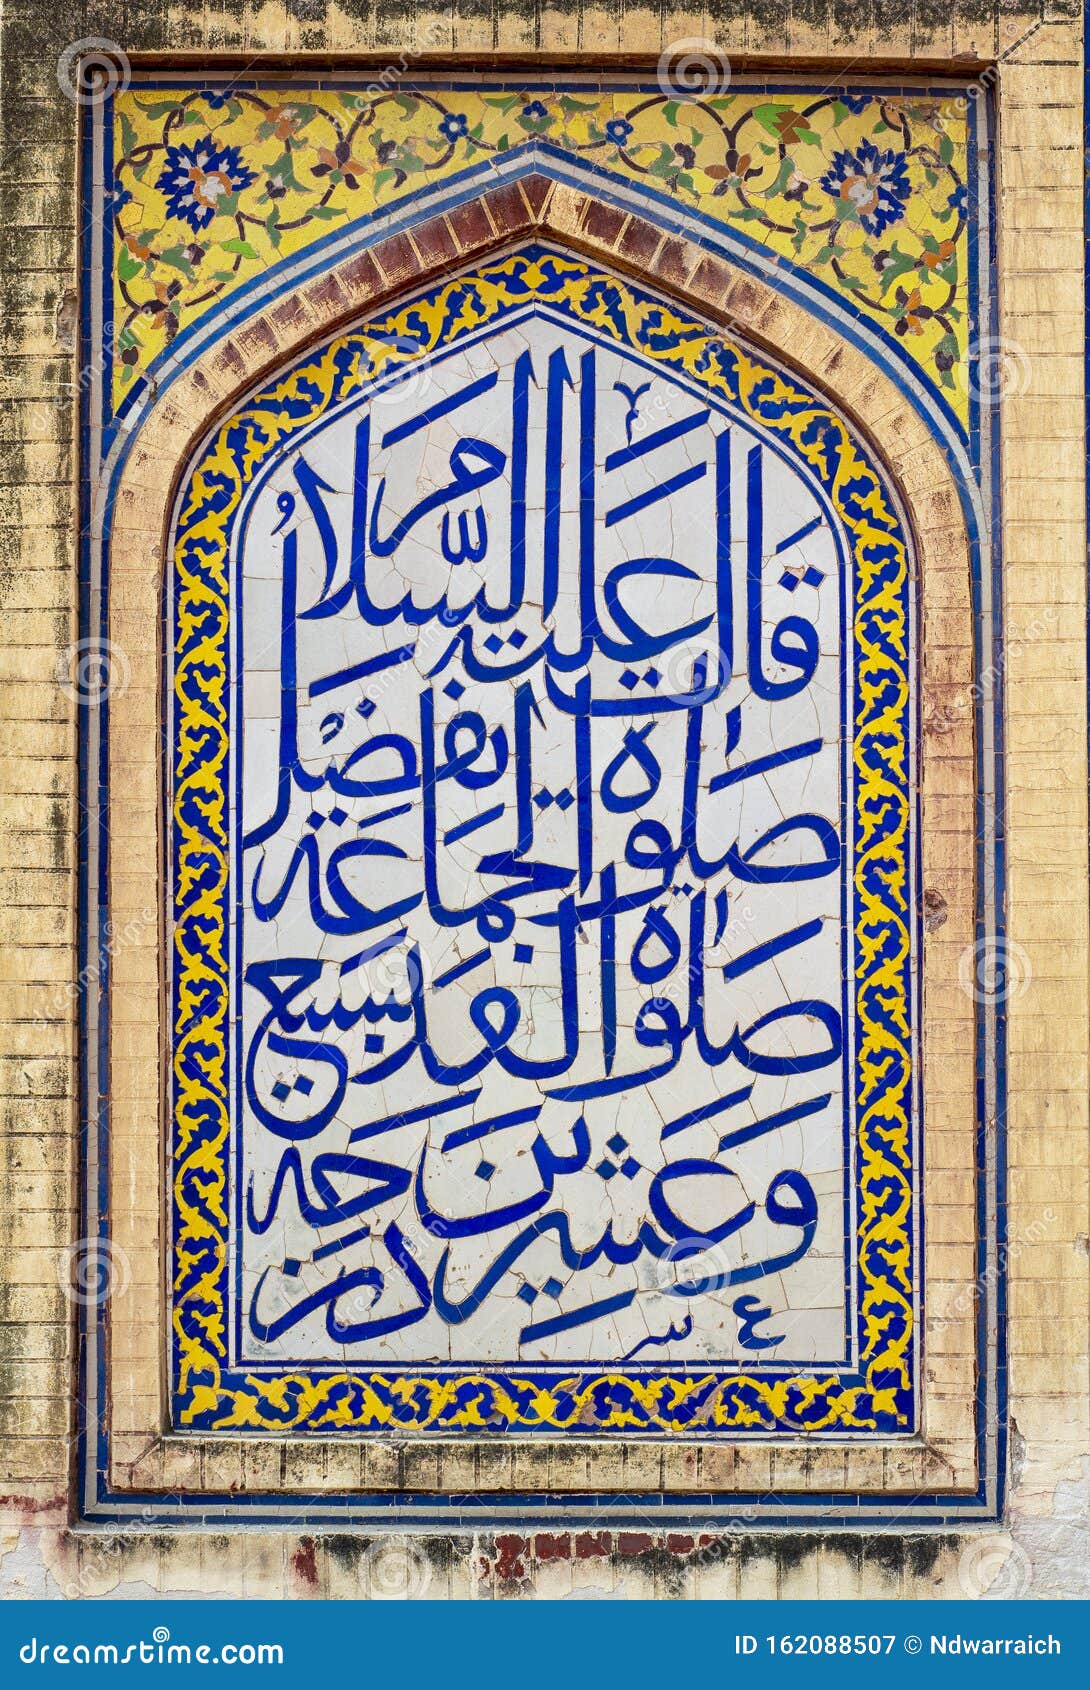 قال عليه السلام
صلوة الجماعة تفضل
صلوة الفذ بسبع
وعشرين درجة
dreamstime.com
ID 162088507 © Ndwarraich